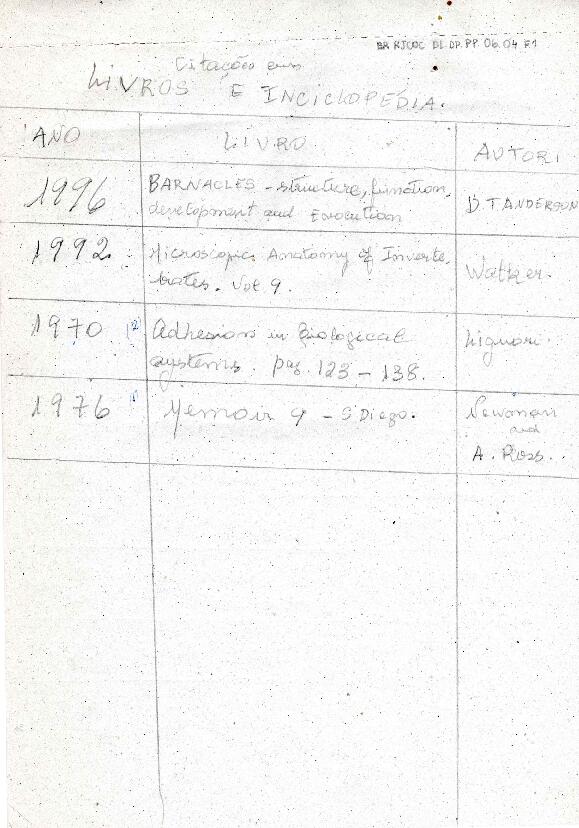 BR RJCOC DL.DP.PP.06.04 F1
Citações em
LIVROS E INCICLOPEDIA.
ANO LIVRO AUTORI
1996 BARNACLES - structure, function, D.T ANDERSON
development and Evocution
1992. Microscopic Anatomy of Inverte, Walker.
brates. Vol 9.
1970 Adhesion in Biological Liguori.
systems. pag. 123 - 138.
1976 Memoir 9 - S Diego. Newman
and
A. Ross.